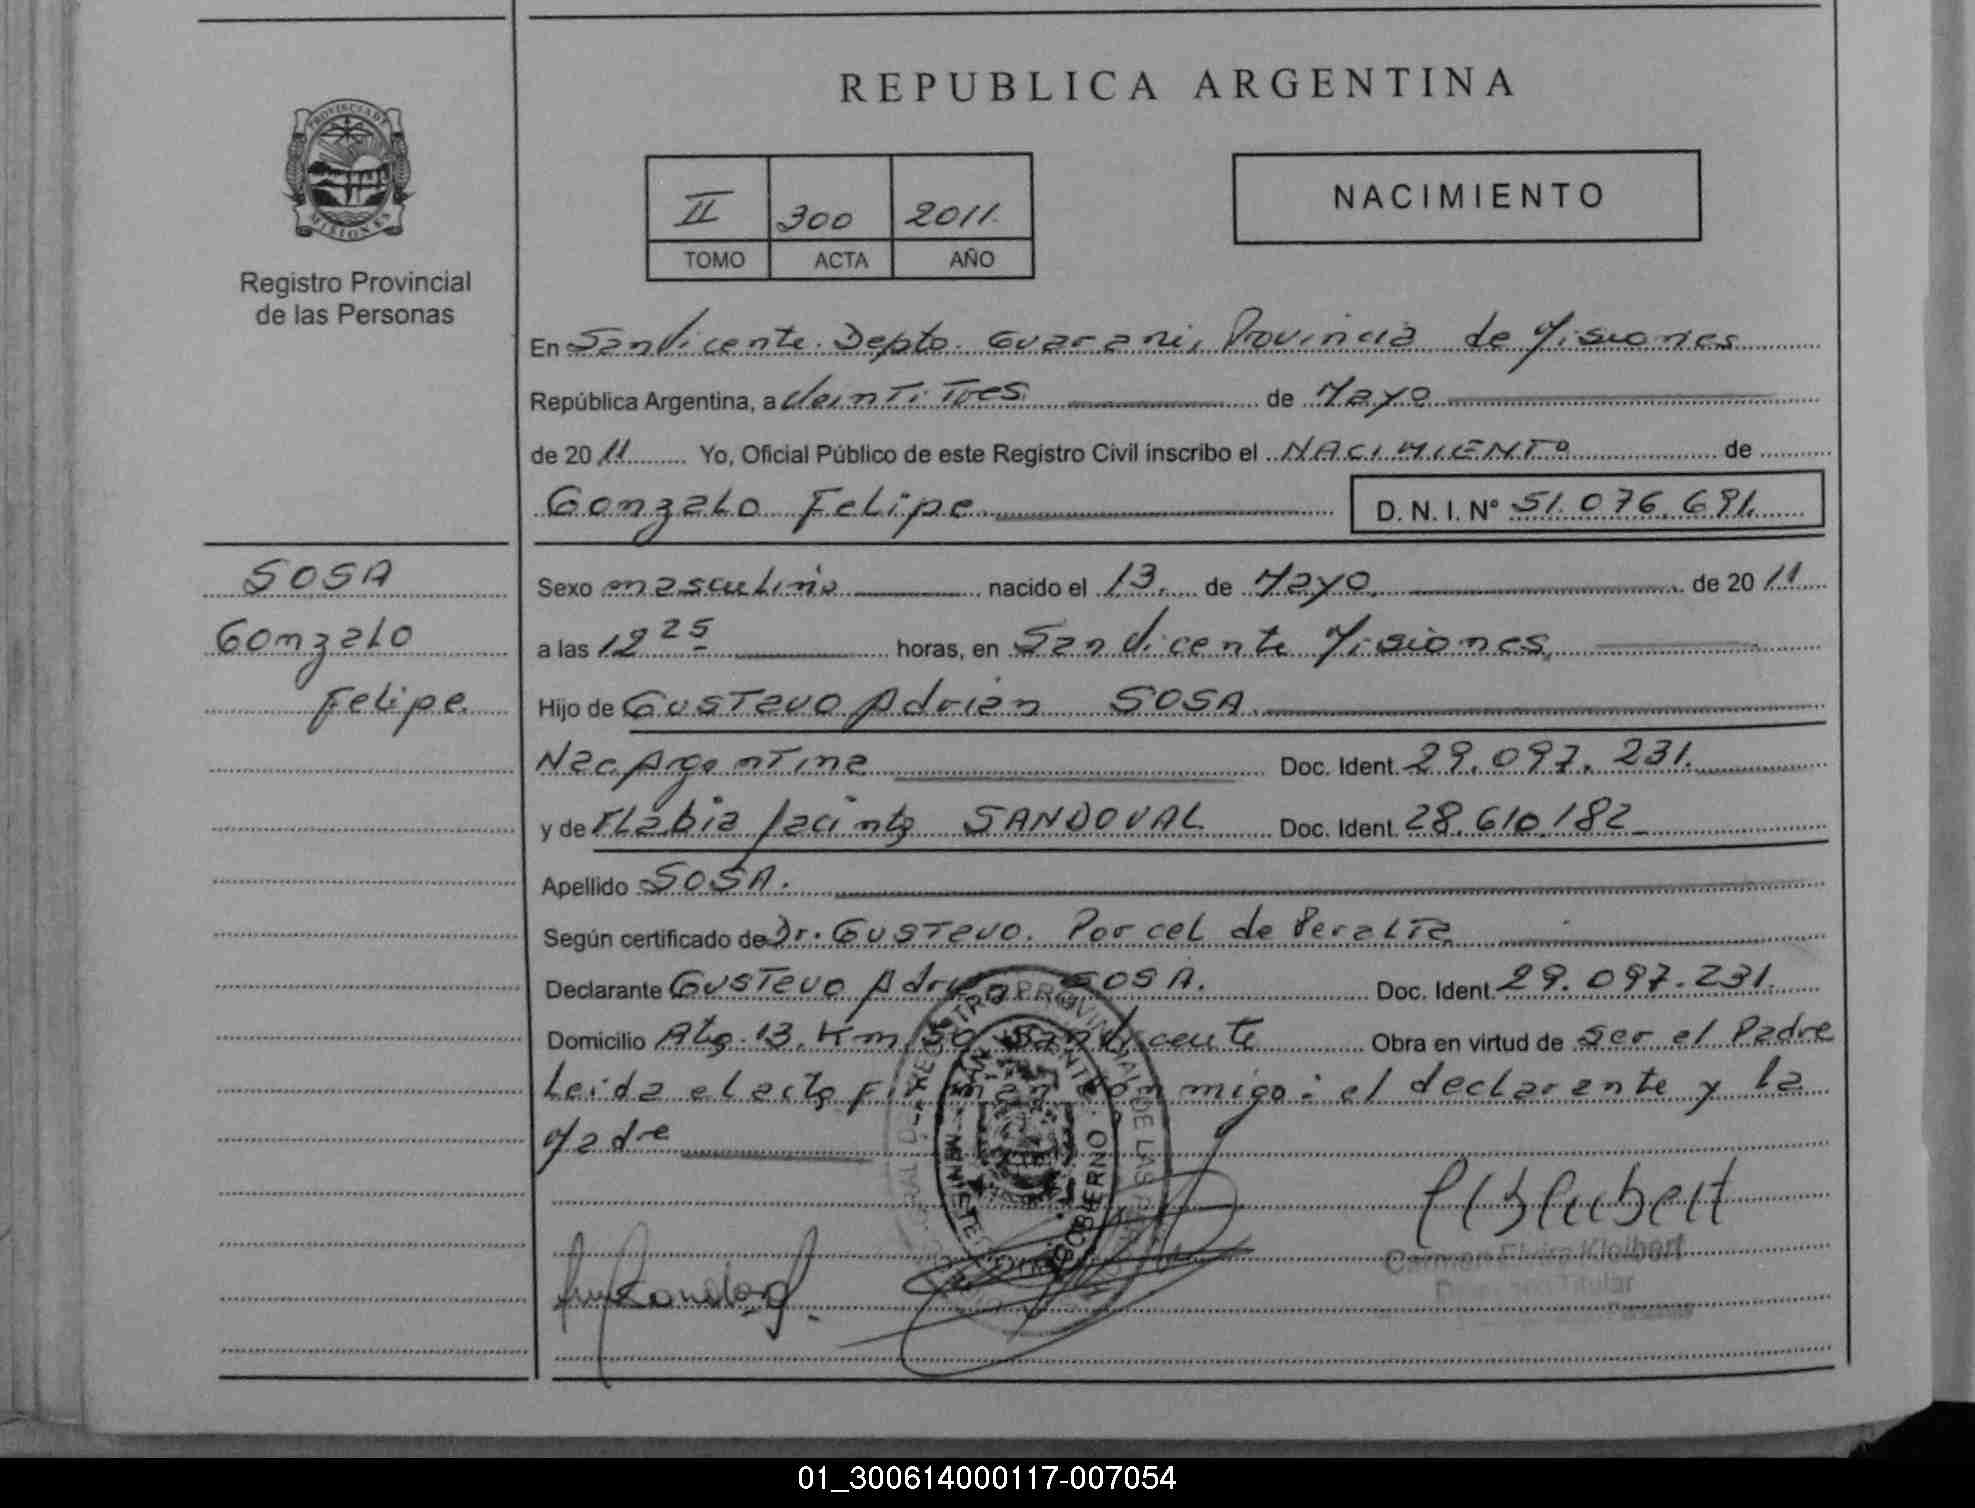 PROVINCIA DE
MISIONES
Registro Provincial
de las Personas
REPUBLICA ARGENTINA
II 300 2011
TOMO ACTA AÑO
NACIMIENTO
En San Vicente. Depto. Guarani, Provincia de Misiones
República Argentina, a Veinti Tres de Mayo
de 2011 Yo, Oficial Público de este Registro Civil inscribo el NACIMIENTO de
Gonzalo Felipe D. N. I. N° 51.076.691.
SOSA
Gonzalo
Felipe
Sexo masculino nacido el 13. de Mayo. de 2011
a las 12 25 horas, en San Vicente Misiones,
Hijo de Gustavo Adrian SOSA
Nac Argentina Doc. Ident. 29.097.231.
y de Flabia Jacinta SANDOVAL Doc. Ident. 28.610.182
Apellido SOSA.
Según certificado de Dr. Gustavo. Porcel de Peralta
Declarante Gustavo Adrian SOSA. Doc. Ident. 29.097.231.
Domicilio Km 50 San Vicente Obra en virtud de ser el Padre
Leida el acta firman conmigo: el declarante y la
Madre
Carmen Elvira Kleibert
Titular
01_300614000117-007054